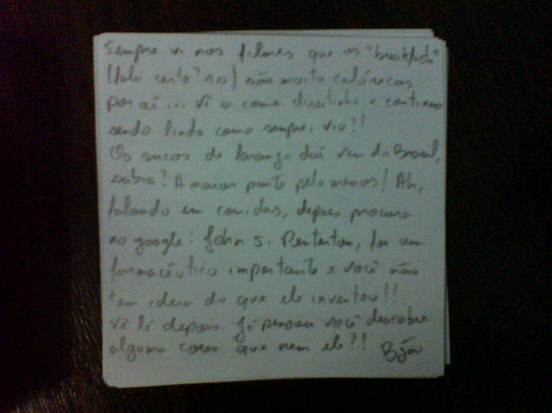 Sempre vi nos filmes que os "breakfasts"
(falei certo? rs) são muito calóricos
por aí... Vê se come direitinho e continua
sendo lindo como sempre, viu?!
Os sucos de laranja daí vem do Brasil,
sabia? A maior parte pelo menos! Ah,
falando em comidas, depois procura
no google: John S. Pemberton, foi um
farmacêutico importante e você não
tem ideia do que ele inventou!!
Vê lá depois. Já pensou você descobre
alguma coisa que nem ele?! Bjão